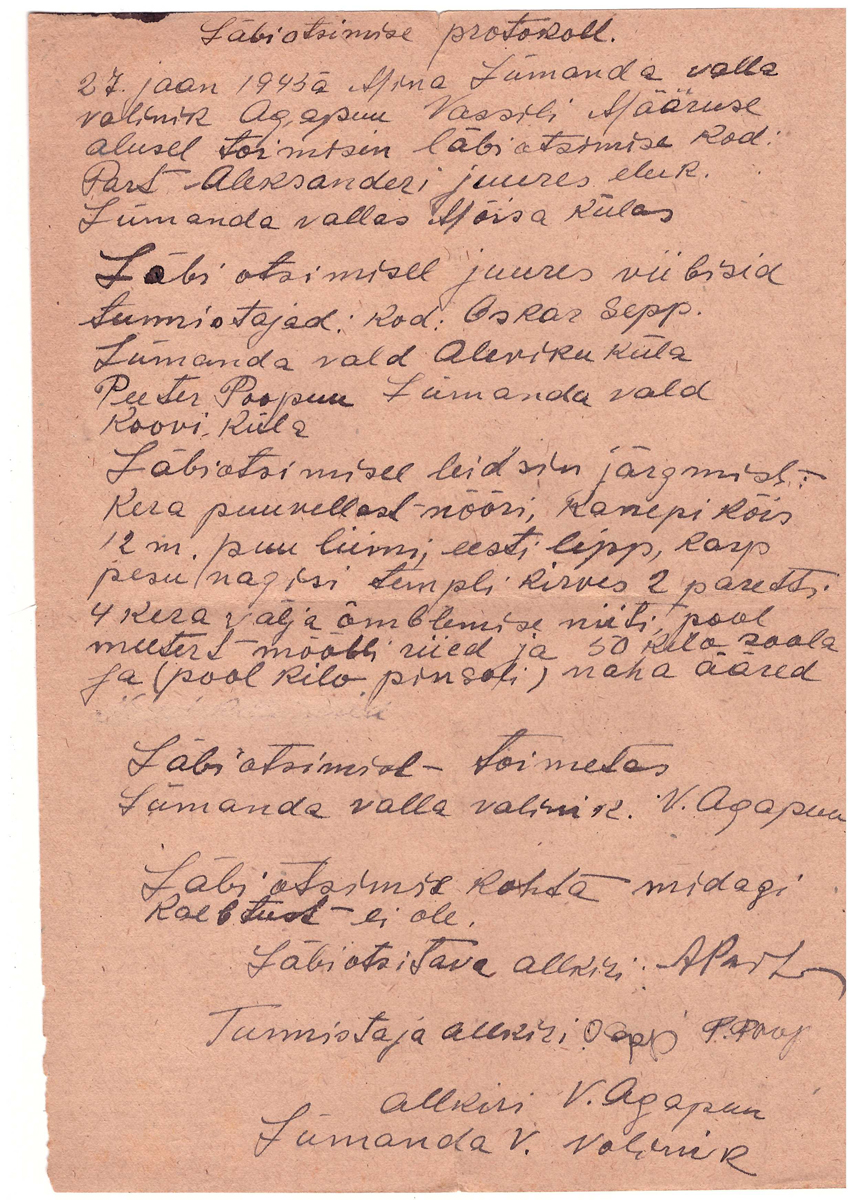 Läbiotsimise protokoll.
27. jaan 1945ā Mina Lümanda valla
valinik Agapuu Vassili Määruse
alusel toimisin läbiotsimise kod:
Part Aleksanderi juures eluk.
Lümanda vallas Mõisa Külas
Läbi otsimisel juures viibisid
tunnistajad: kod: Oskar Sepp.
Lümanda vald Aleviku küla
Peeter Poopuu Lümanda vald
Koovi. Küla
Läbiotsimisel leidsin järgmist:
Kera puuvellast nööri, Kanepi Kõis
12 m. puu liimi, eesti lipp, karp
pesu nagisi templi kirves 2 paretti.
4 Kera välja õmblemise niiti, pool
meetert mööbli riied ja 50 kilo soola
ja (pool kilo pinsoli) naha ääred
Läbiotsimist toimetas
Lümanda valla valinik. V. Agapuu
Läbi otsimis kohta midagi
Kaebtust ei ole.
Läbiotsitava allkiri: APart
Tunnistaja allkiri OSepp P. Poop
allkiri V. Agapuu
Lümanda V. Volinik